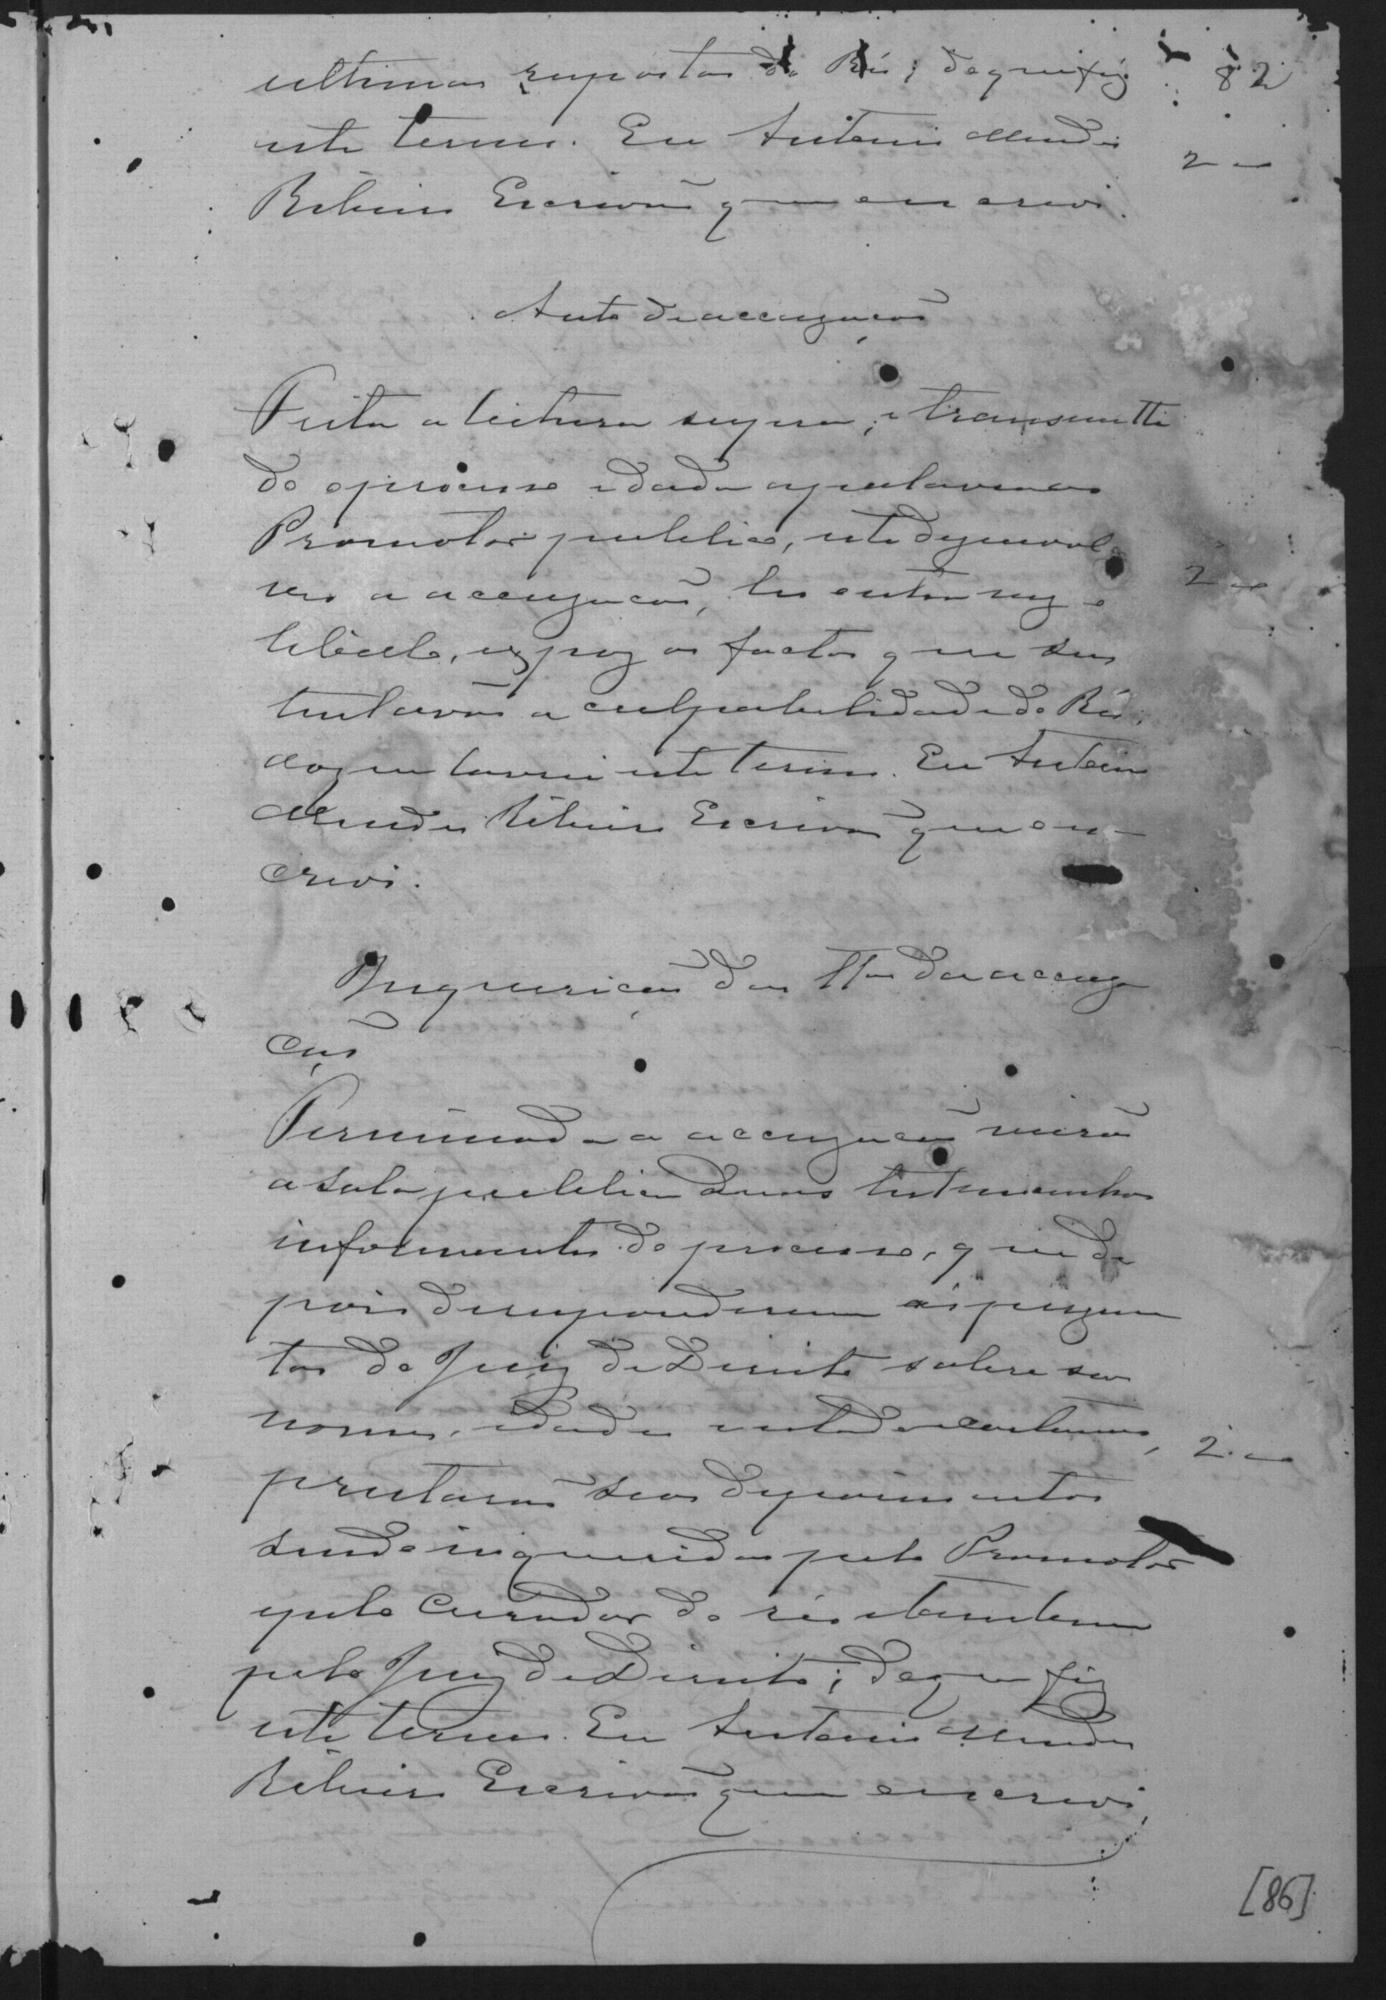 ultimas respostas do Réo; de que fiz
82
este termo. Eu Antonio Mendes
2 —
Ribeiro Escrivão que escrevi.
Auto de accuzação
Feita a leitura supra, e transmitti
do o processo e dada a palavra ao
Promotor publico, este dezenvol
veu a accuzação, leu entre nós o
2 —
libello, expoz os factos que sus
tentavão a culpabilidade do Réo;
do que lavrei este termo. Eu Antonio
Mendes Ribeiro Escrivão que es
crevi.
Inquirição das ttas da accuza
ção
Terminada a accuzação vierão
a sala publica duas testemunhas
informantes do processo, que de
pois de responderem ás pergun
tas do Juiz de Direito sobre seus
nomes, idades estado e costumes,
2 —
prestarão seus depoimentos
sendo inqueridas pelo Promotor
e pelo Curador do réo e tambem
pelo Juiz de Direito; de que fiz
este termo. Eu Antonio Mendes
Ribeiro Escrivão que escrevi.
[86]